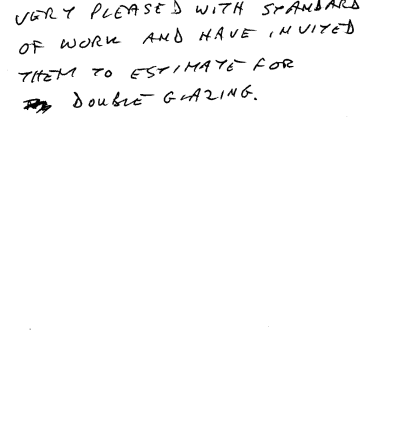 VERY PLEASED WITH STANDARD
OF WORK AND HAVE INVITED
THEM TO ESTIMATE FOR
DOUBLE GLAZING.